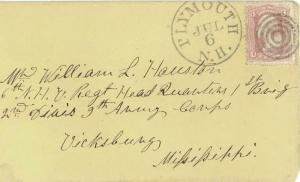 PLYMOUTH
JUL
6
N.H.
Wm William L. Houston
6th N.H.V. Regt Head Quarters 1st Brig
2nd Divis 9th Army Corps
Vicksburg
Mississippi.